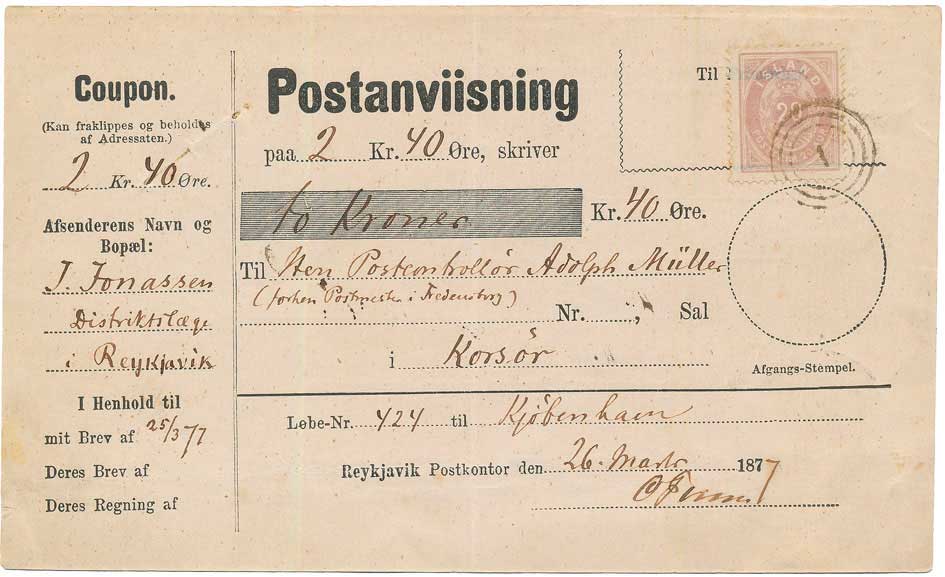 Coupon.
(Kan fraklippes og beholdes
af Adressaten.)
2 Kr. 40 Øre.
Afsenderens Navn og
Bopæl:
J. Jonassen
Distriktslæge
i Reykjavik
I Henhold til
mit Brev af 25/3 77
Deres Brev af
Deres Regning af
Postanviisning
paa 2 Kr. 40 Øre, skriver
to Kroner Kr. 40 Øre.
Til Herr Postcontrollör Adolph Müller
(forhen Postmester i Fredensborg)
Nr. , Sal
i Korsör
Løbe-Nr. 424 til Kjöbenhavn
Reykjavik Postkontor den 26. Marts 1877
Til
ISLAND
20
1
Afgangs-Stempel.